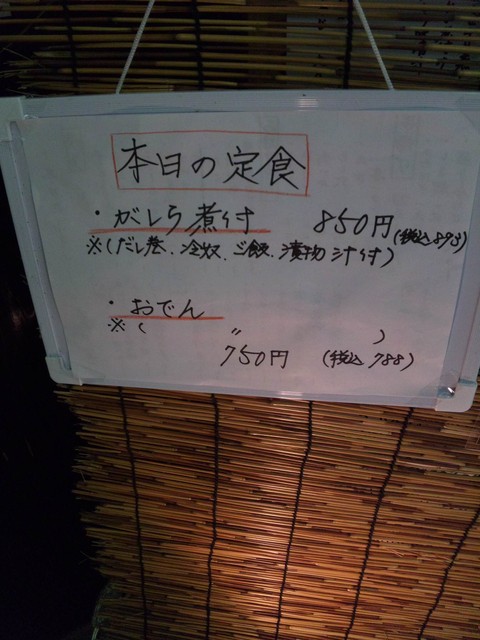 本日の定食
・がしら煮付 850円(税込893)
※(だし巻、冷奴、ご飯、漬物汁付)
・おでん
※( 〃 )
750円 (税込788)